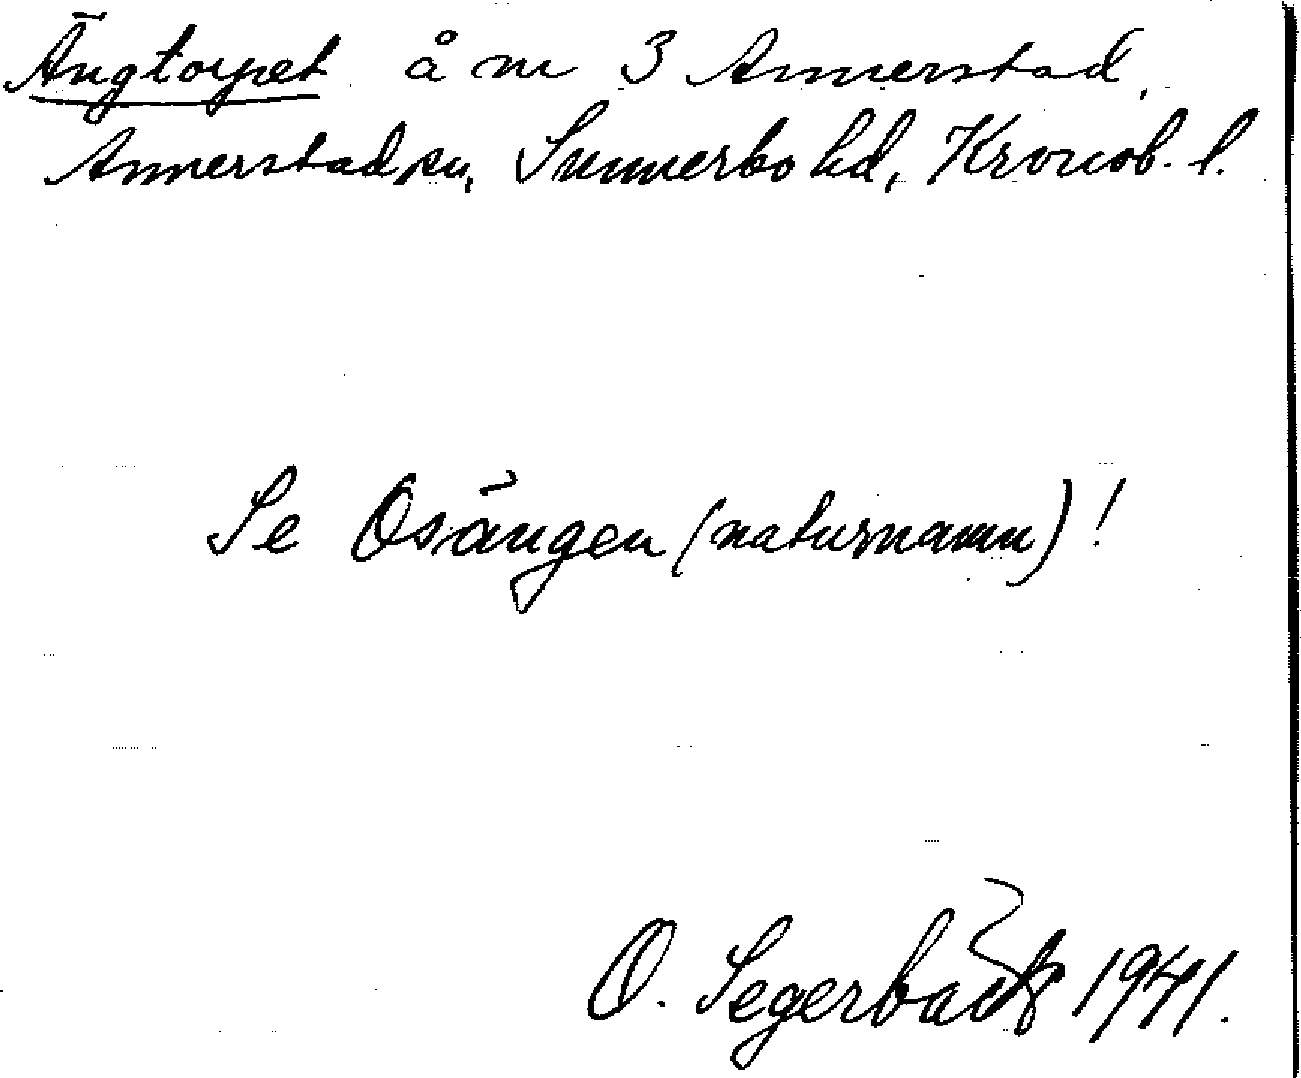 Ängtorpet å nr 3 Annerstad,
Annerstad sn, Sunnerbo hd, Kronob. l.
Se Osängen (naturnamn)!
O. Segerbäck 1941.